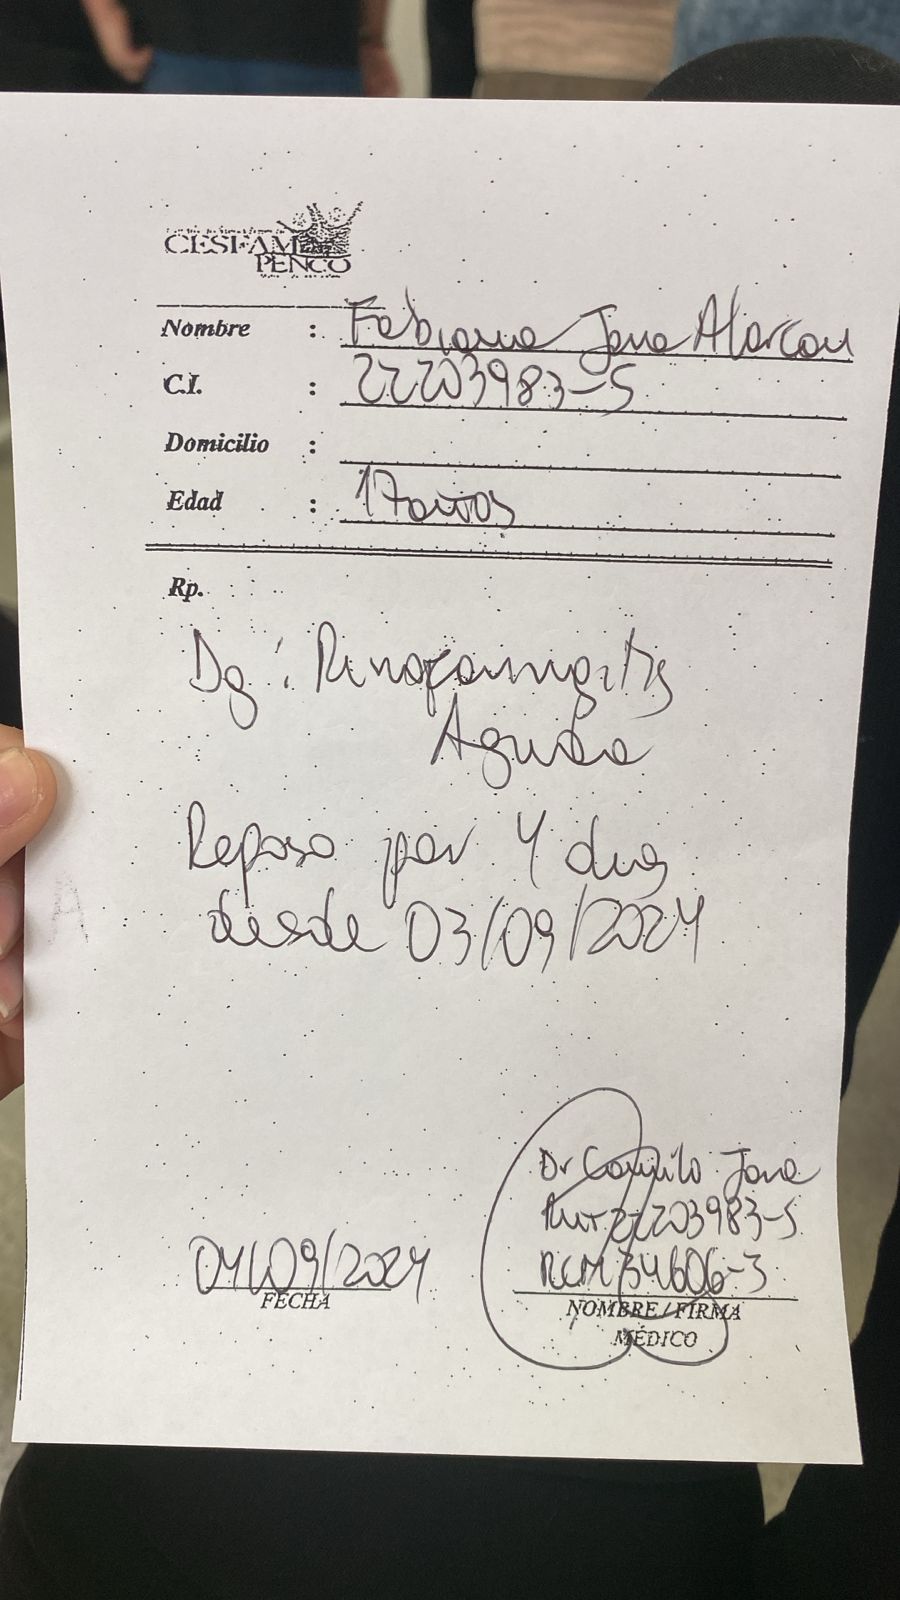 CESFAM
PENCO
Nombre : Fabiana Jana Alarcon
C.I. : 22203983-5
Domicilio :
Edad : 17 años
Rp.
Dg: Rinofaringitis
Aguda
Reposo por 4 dias
desde 03/09/2024
Dr Camilo Jana
Rut 22203983-5
RCM 34606-3
04/09/2024
FECHA
NOMBRE / FIRMA
MÉDICO